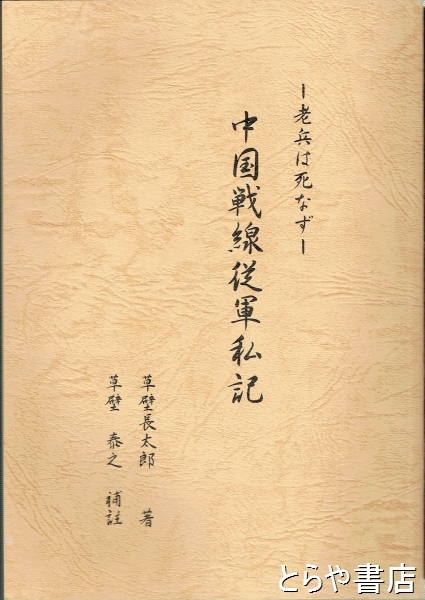 ―老兵は死なず―
中国戦線従軍私記
草壁長太郎 著
草壁 泰之 補註
とらや書店